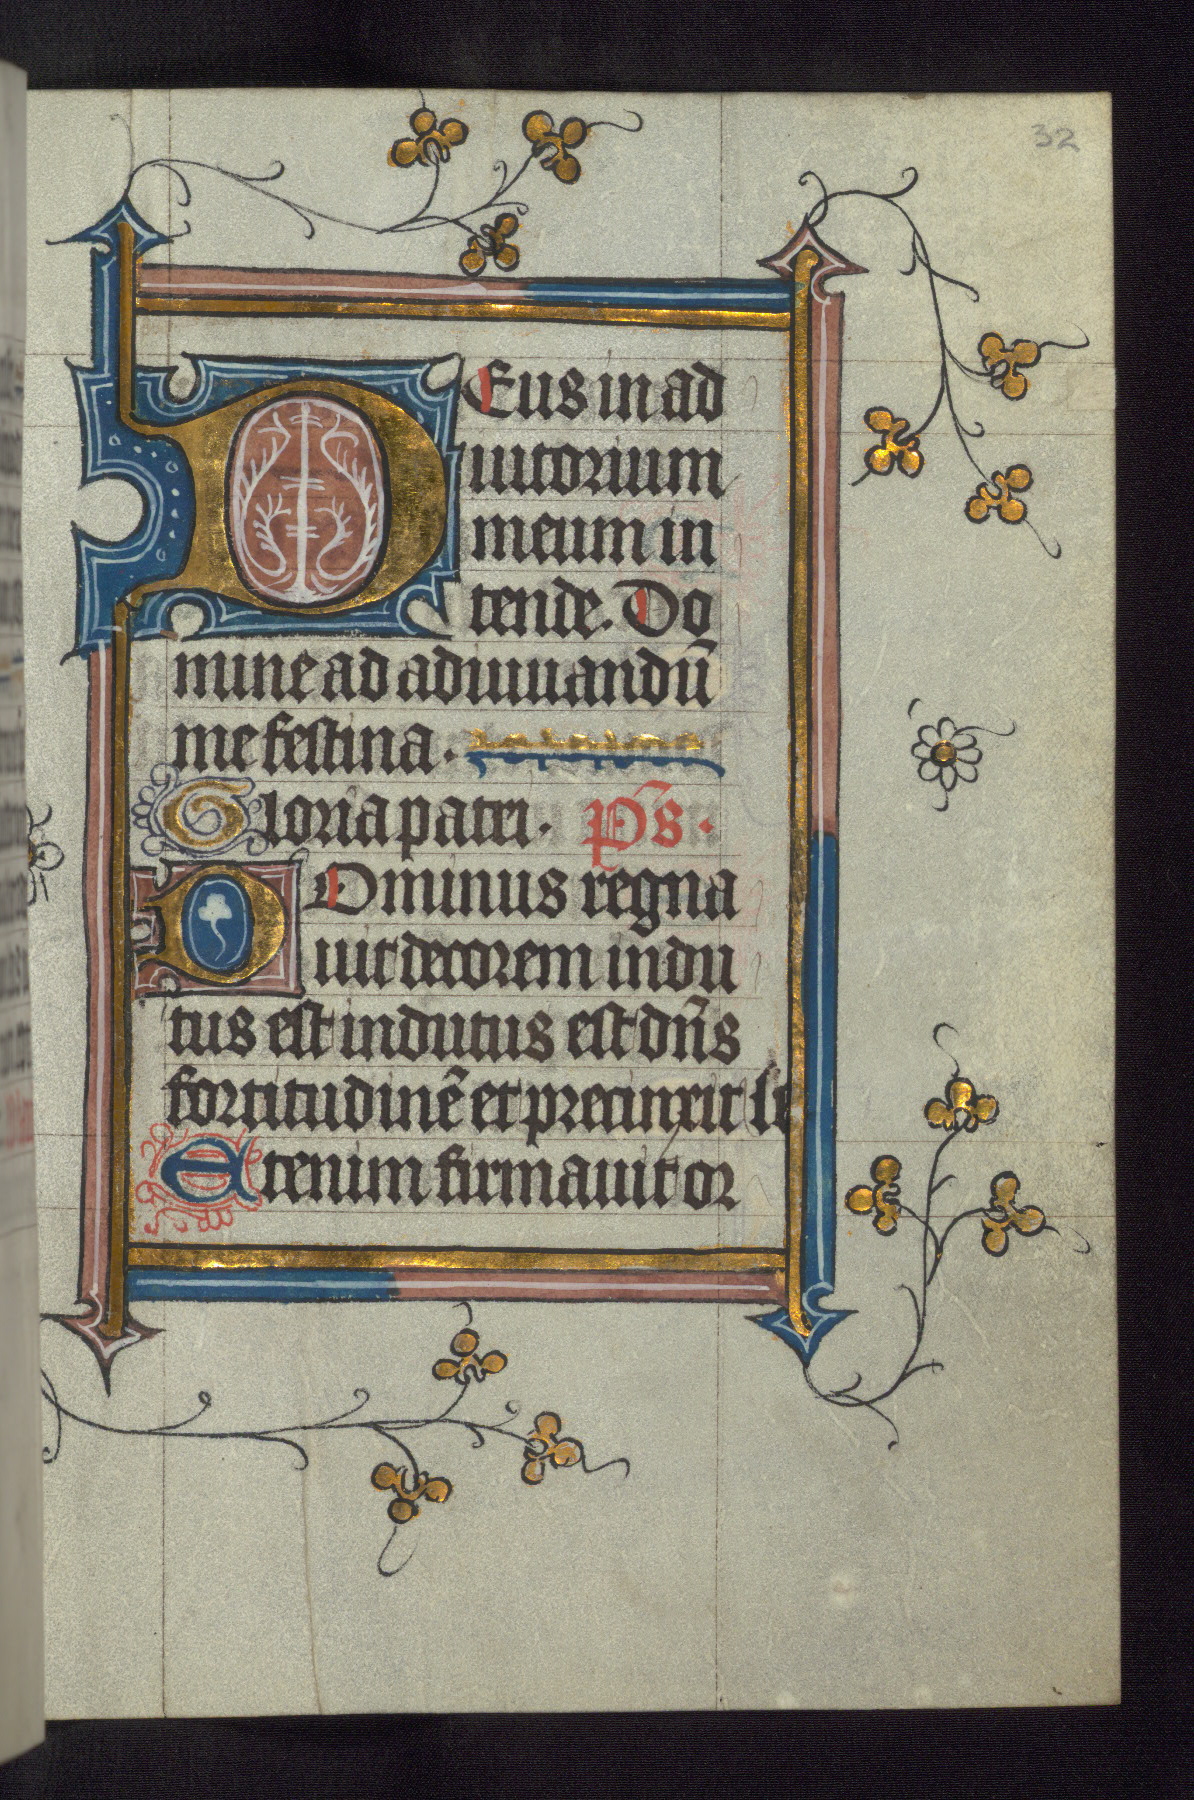 32
DEus in ad
iutorium
meum in
tende. Do
mine ad adiuuandū
me festina.
Gloria patri. p̄s.
DOminus regna
uit decorem indu
tus est indutus est dn̄s
fortitudinē et precinxit se
Etenim firmauit or